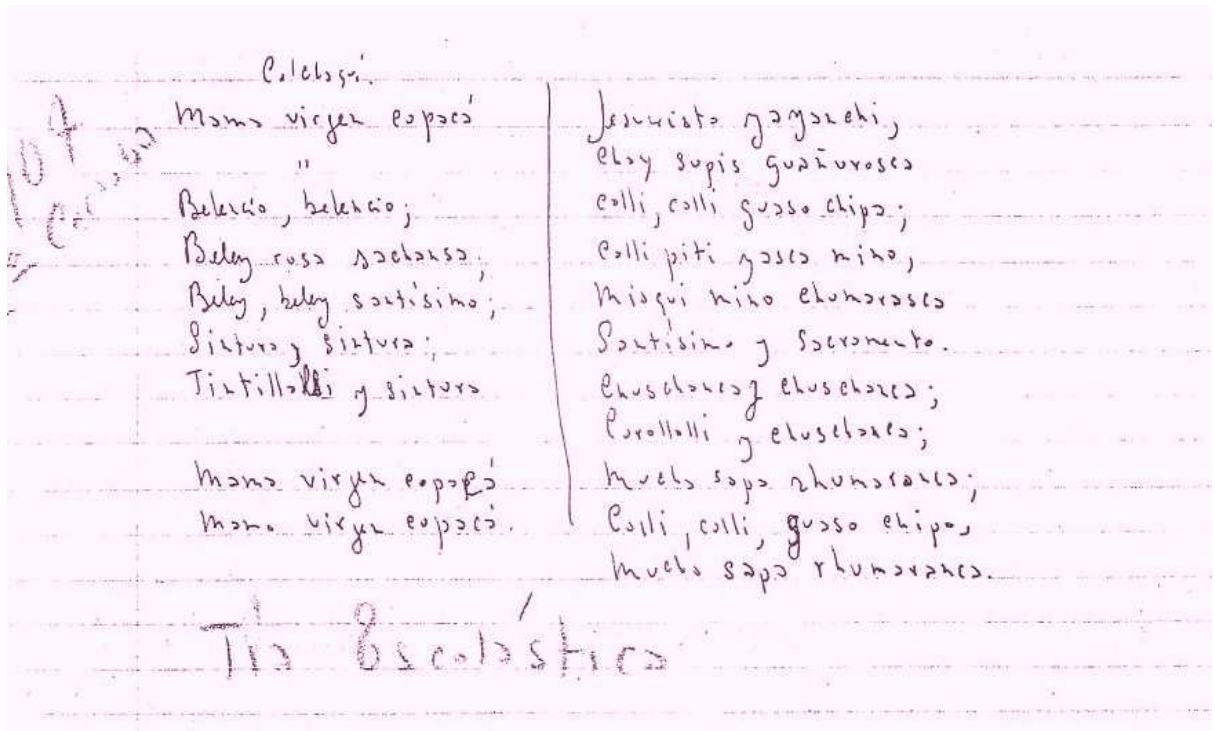 Mama virgen copacá
"
Belencio, belencio;
Belen rosa sachansa;
Belen, belen santísimo;
Sintura y sintura;
Tintillalli y sintura
Mama virgen copacá
Mama virgen copacá.
Jesucristo yayanchi,
Chay supis guañurosca
Colli, colli guaso chipa;
Colli piti yasca nino,
Misqui nino chumarasca
Santísimo y Sacramento.
Chuschanca y chuschanca;
Corollalli y chuschanca;
Mucha sapa rhumaranca;
Colli, colli, guaso chipa,
Mucha sapa rhumaranca.
Tía Escolástica